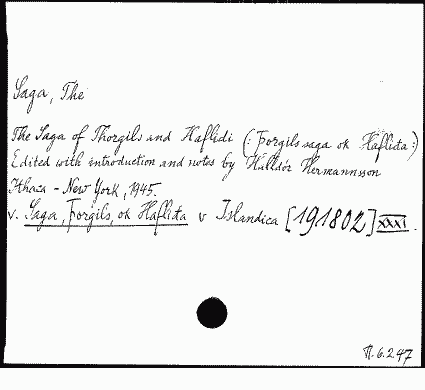 Saga, The
The Saga of Thorgils and Hafliði (: Þorgils saga ok Hafliða :)
Edited with introduction and notes by Halldór Hermannsson
Ithaca - New York, 1945.
v. Saga, Þorgils, ok Hafliða v Islandica [191802] XXXI.
π. 6.2.47